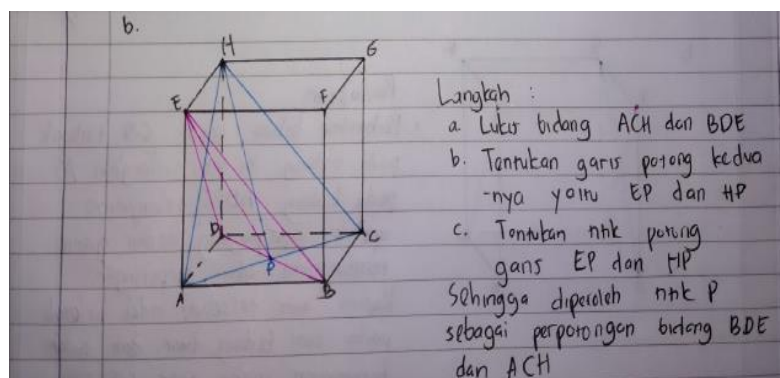 b.
H
G
E
F
D
C
P
A
B
Langkah :
a. Lukis bidang ACH dan BDE
b. Tentukan garis potong kedua
-nya yaitu EP dan HP
c. Tentukan ttk potong
garis EP dan HP
Sehingga diperoleh ttk P
sebagai perpotongan bidang BDE
dan ACH